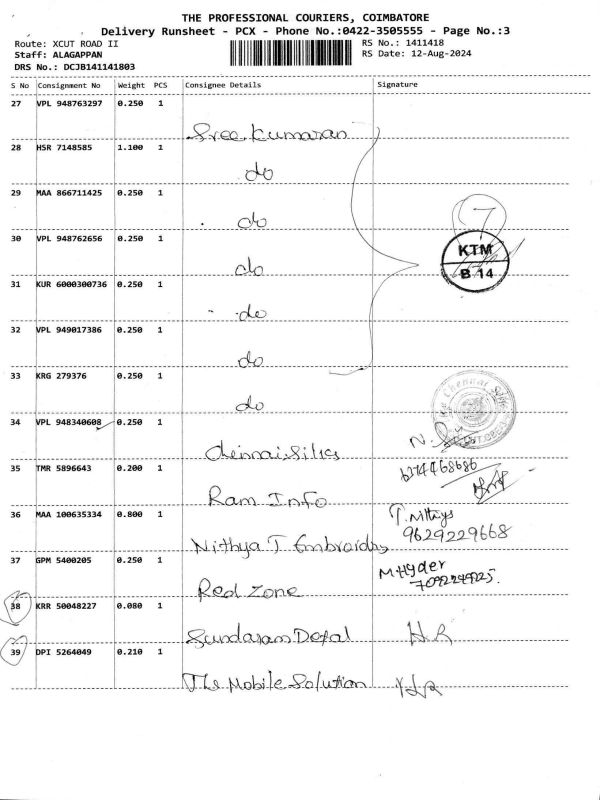 THE PROFESSIONAL COURIERS, COIMBATORE
Delivery Runsheet - PCX - Phone No.:0422-3505555 - Page No.:3
Route: XCUT ROAD II
Staff: ALAGAPPAN
DRS No.: DCJB141141803
RS No.: 1411418
RS Date: 12-Aug-2024
S No Consignment No Weight PCS Consignee Details Signature
27 VPL 948763297 0.250 1 Sree Kumaran
28 HSR 7148585 1.100 1 do
29 MAA 866711425 0.250 1 do
30 VPL 948762656 0.250 1 do
7
KTM
B 14
31 KUR 6000300736 0.250 1 do
32 VPL 949017386 0.250 1 do
33 KRG 279376 0.250 1 do
34 VPL 948340608 0.250 1 Chennai Silks
35 TMR 5896643 0.200 1 Ram Info
36 MAA 100635334 0.800 1 Nithya T Embroidry
9629229668
37 GPM 5400205 0.250 1 Red Zone
M Hyder
38 KRR 50048227 0.080 1 Sundaram Depal H R
39 DPI 5264049 0.210 1 The Mobile Solution